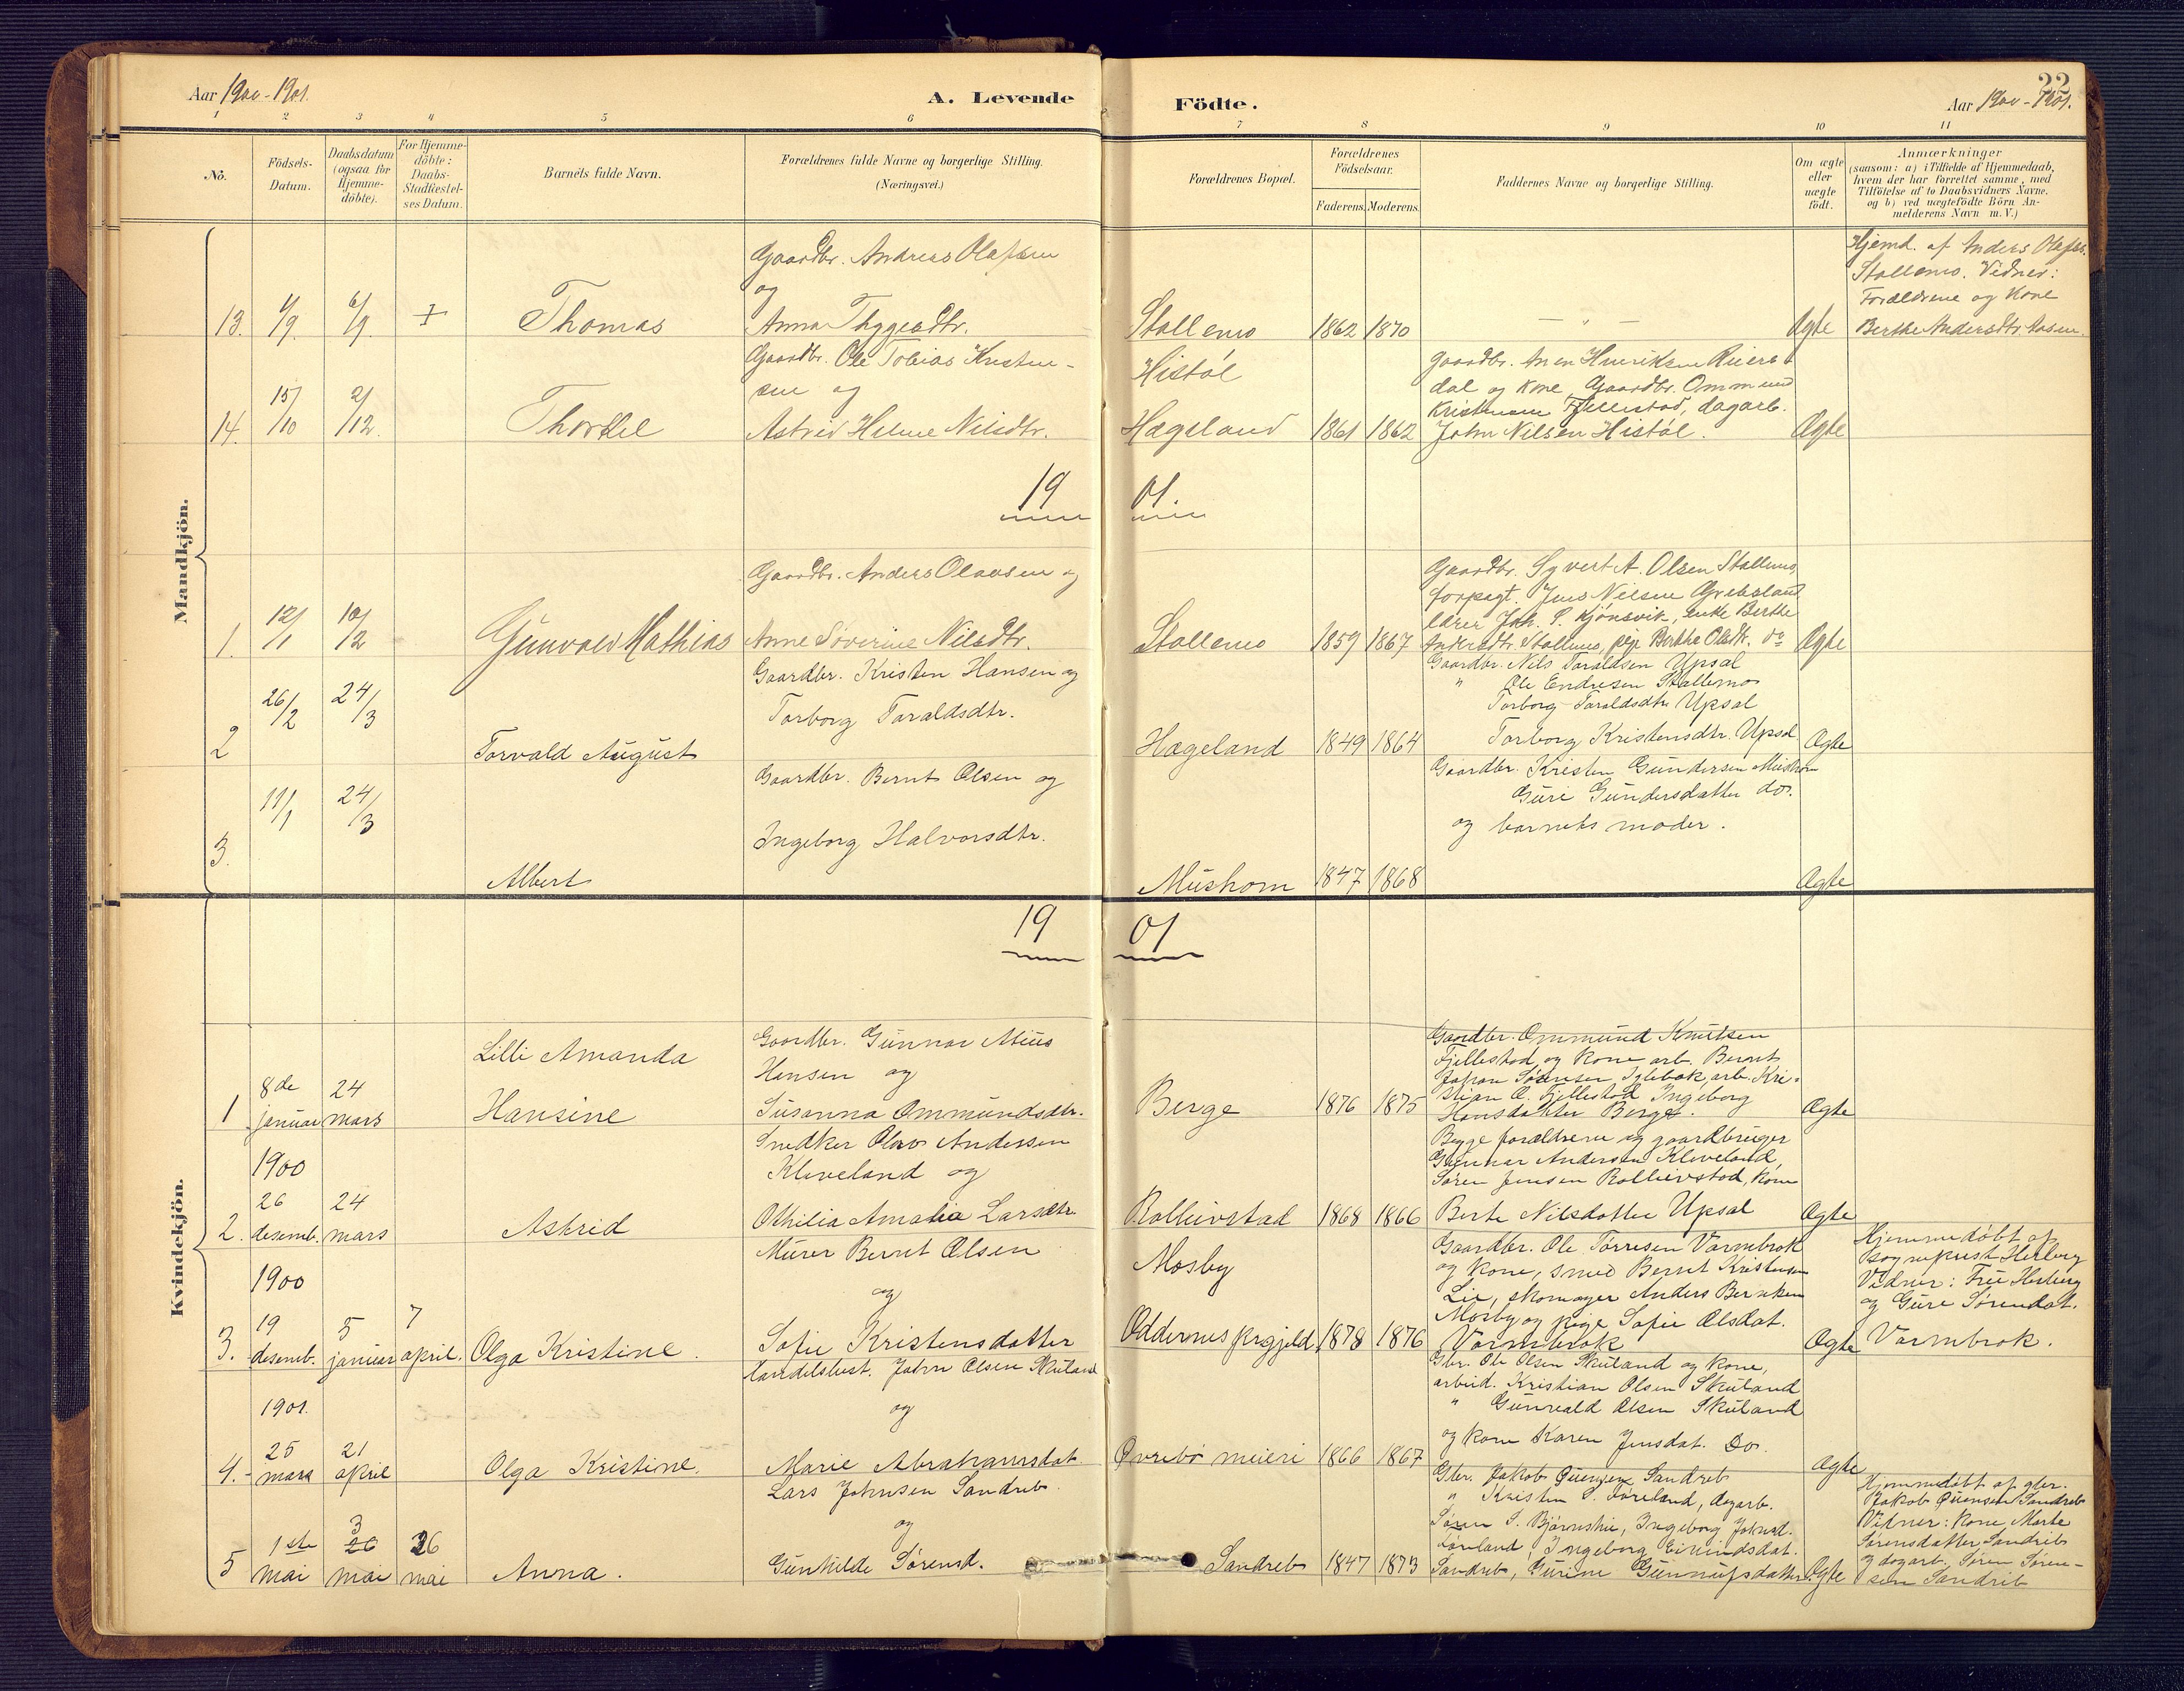 Aar 1900-1901.
A. Levende Födte.
22
Aar 1900-1901.
1 2 3 4 5 6 7 8 9 10 11
No.
Födsels-
Datum.
Daabsdatum
(ogsaa for
Hjemme-
döbte).
For Hjemme-
döbte:
Daabs-
Stadfæstel-
ses Datum.
Barnets fulde Navn.
Forældrenes fulde Navne og borgerlige Stilling.
(Næringsvei.)
Forældrenes Bopæl.
Forældrenes
Födselsaar.
Faderens. Moderens.
Faddernes Navne og borgerlige Stilling.
Om ægte
eller
uægte
födt.
Anmærkninger
(saasom: a) i Tilfælde af Hjemmedaab,
hvem der har forrettet samme, med
Tilföielse af to Daabsvidners Navne,
og b) ved uægtefödte Börn An-
melderens Navn m. V.)
Mandkjön.
13. 4/9 6/9 Thomas
Gaardbr. Andreas Olafsen
og
Anna Thygesdtr.
Stallemo 1862 1870 — " — Ægte
Hjemd. af Anders Olafss.
Stallemo. Vidner:
Forældrene og Kone
Berthe Andersdtr. Aasen.
14. 15/10 2/12
Gaardbr. Ole Tobias Kristen-
sen og
Astrid Helene Nilsdtr.
Histöl
Hægeland 1861 1862
Gaardbr. Henriksen Reiers
dal og Kone, Gaardbr. Ommund
Kristensen Fjellestad, dagarb.
John Nilsen Histöl. Ægte
1901.
1. 12/1 10/2 Gunvald Mathias
Gaardbr. Anders Olavsen og
Anne Söverine Nilsdtr.
Stallemo 1859 1867
Gaardbr. Syvert A. Olsen Stallemo,
forpagt. Jens Nilsen Grebsland
lærer Joh. S. Kjönsvik, enke Berthe
Andersdtr. Stallemo, pige Berthe Olsdtr. do Ægte
2 26/2 24/3 Torvald August
Gaardbr. Kristen Hansen og
Torborg Taraldsdtr.
Hægeland 1849 1864
Gaardbr. Nils Taraldsen Upsal
" Ole Endresen Stallemo
Torborg Taraldsdtr. Upsal
Torborg Kristensdtr. Upsal Ægte
3. 11/1 24/3 Albert
Gaardbr. Bernt Olsen og
Ingeborg Halvorsdtr.
Mushom 1847 1868
Gaardbr. Kristen Gundersen Mushom
Guri Gundersdatter do.
og barnets moder. Ægte
Kvindekjön.
1901
1 8de januar 24 mars
Lilli Amanda
Hansine
Gaardbr. Gunnar Atius
Hansen og
Susanna Ommundsdtr.
Berge 1876 1875
Gaardbr. Ommund Knutsen
Fjellestad og Kone arb. Bernt
Johan Sörensen Iglebæk, arb. Kri-
stian O. Fjellestad Ingeborg
Hansdatter Berge. Ægte
2. 1900 26 desemb. 24 mars Astrid
Snedker Olav Andersen
Kleveland og
Othilia Amalia Larsdtr.
Rolleivstad 1868 1866
Begge forældrene og gaardbruger
Gunnar Andersen Kleveland,
Sören Jensen Rolleivstad, kone
Berte Nilsdatter Upsal Ægte
3. 1900 19 desemb. 5 januar 7 april. Olga Kristine.
Murer Bernt Olsen
og
Sofie Kristensdatter
Mosby
Oddernes prgjeld 1878 1876
Gaardbr. Ole Torresen Varmbrok
og kone, smed Bernt Kristensen
Lie, skomager Anders Berntsen
Mosby og pige Sofie Olsdat.
Varmbrok Ægte
Hjemmedöbt af
sogneprest Herberg
Vidner: Fru Herberg
og Gure Sörensdat.
Varmbrok.
4. 1901. 25 mars 21 april Olga Kristine.
Handelsbest. John Olsen Skuland
og
Marie Abrahamsdat.
Övrebö meieri 1866 1867
Gbr. Ole Olsen Skuland og kone,
arbeid. Kristian Olsen Skuland
" Gunvald Olsen Skuland
og kone Karen Jensdat. Do. Ægte
5 1ste mai 3 mai 26 mai Anna.
Lars Johnsen Sandreb
og
Gunhilde Sörensd.
Sandreb 1847 1873
Gbr. Jakob Sandreb
" Kristen S. Föreland, dagarb.
Sören S. Ingeborg Johnsd.
Ingeborg Eivindsdat.
Sandreb, Gurine Gunnufsdatter Ægte
Hjemmedöbt af gbr.
Jakob Sandreb
Vidner: Kone Marte
Sörensdatter Sandrib
og dagarb. Sören Sören-
sen Sandrib